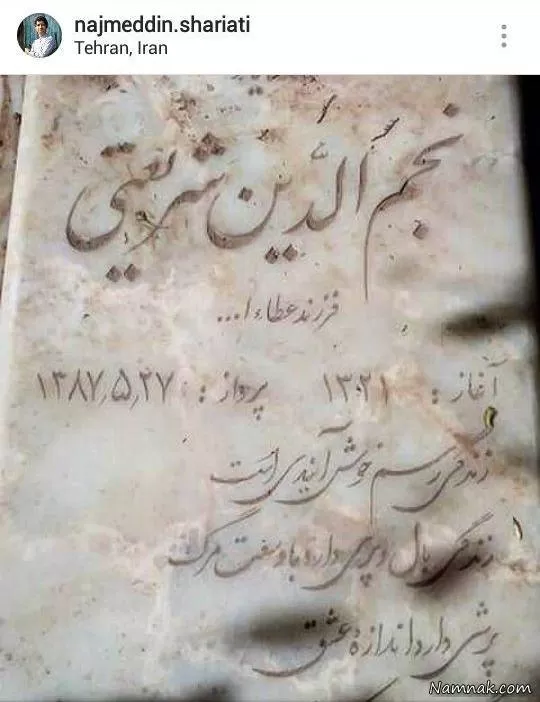 najmeddin.shariati
Tehran, Iran
نجم الدّین شریعتی
فرزند عطاءا...
آغاز : ۱۳۲۱ پرواز : ۱۳۸۷٫۵٫۲۷
زندگی رسم خوش آیندی است
زندگی بال و پری دارد با وسعت مرگ
پرشی دارد اندازهٔ عشق
Namnak.com